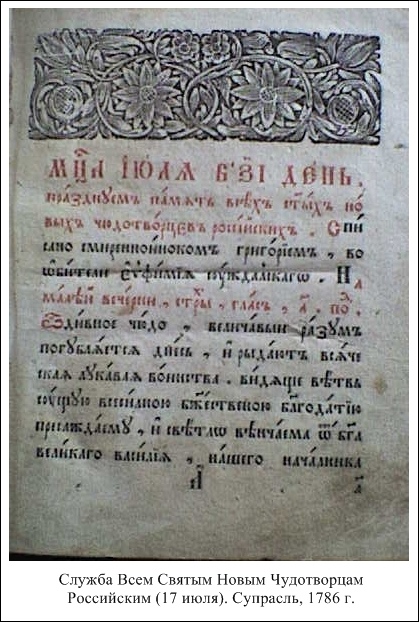 МЦ҃А ІЮ́ЛА В҃ЗІ ДЕ́НЬ,
пра́зднуемъ па́мѧть всѣ́хъ ст҃ы́хъ но
выхъ чюдотво́рцєвъ росі́йскихъ . Спи
сано смире́нноинокомъ григо́рїемъ , во
ѡ҆би́тели єѵ҆фи́мїѧ су́ждалскагѡ . На
ма́лѣй вече́рни , стр҃ы , гла́съ , а҃ . по .
Ѽ ди́вное чю́до , велича́выи ра́зумъ
погубла́етсѧ дне́сь , и҆ рыда́ютъ всѧ́че
скаѧ лука́ваѧ во́инства . ви́дѧще вѣ́твь
су́щую всеси́лною бж҃е́ственою благода́тїю
присажда́ему , и҆ свѣ́тлѡ вѣнча́ема ѿ бг҃а
вели́каго васи́лїѧ , на́шего нача́лника
а҃
Служба Всем Святым Новым Чудотворцам
Российским (17 июля). Супрасль, 1786 г.